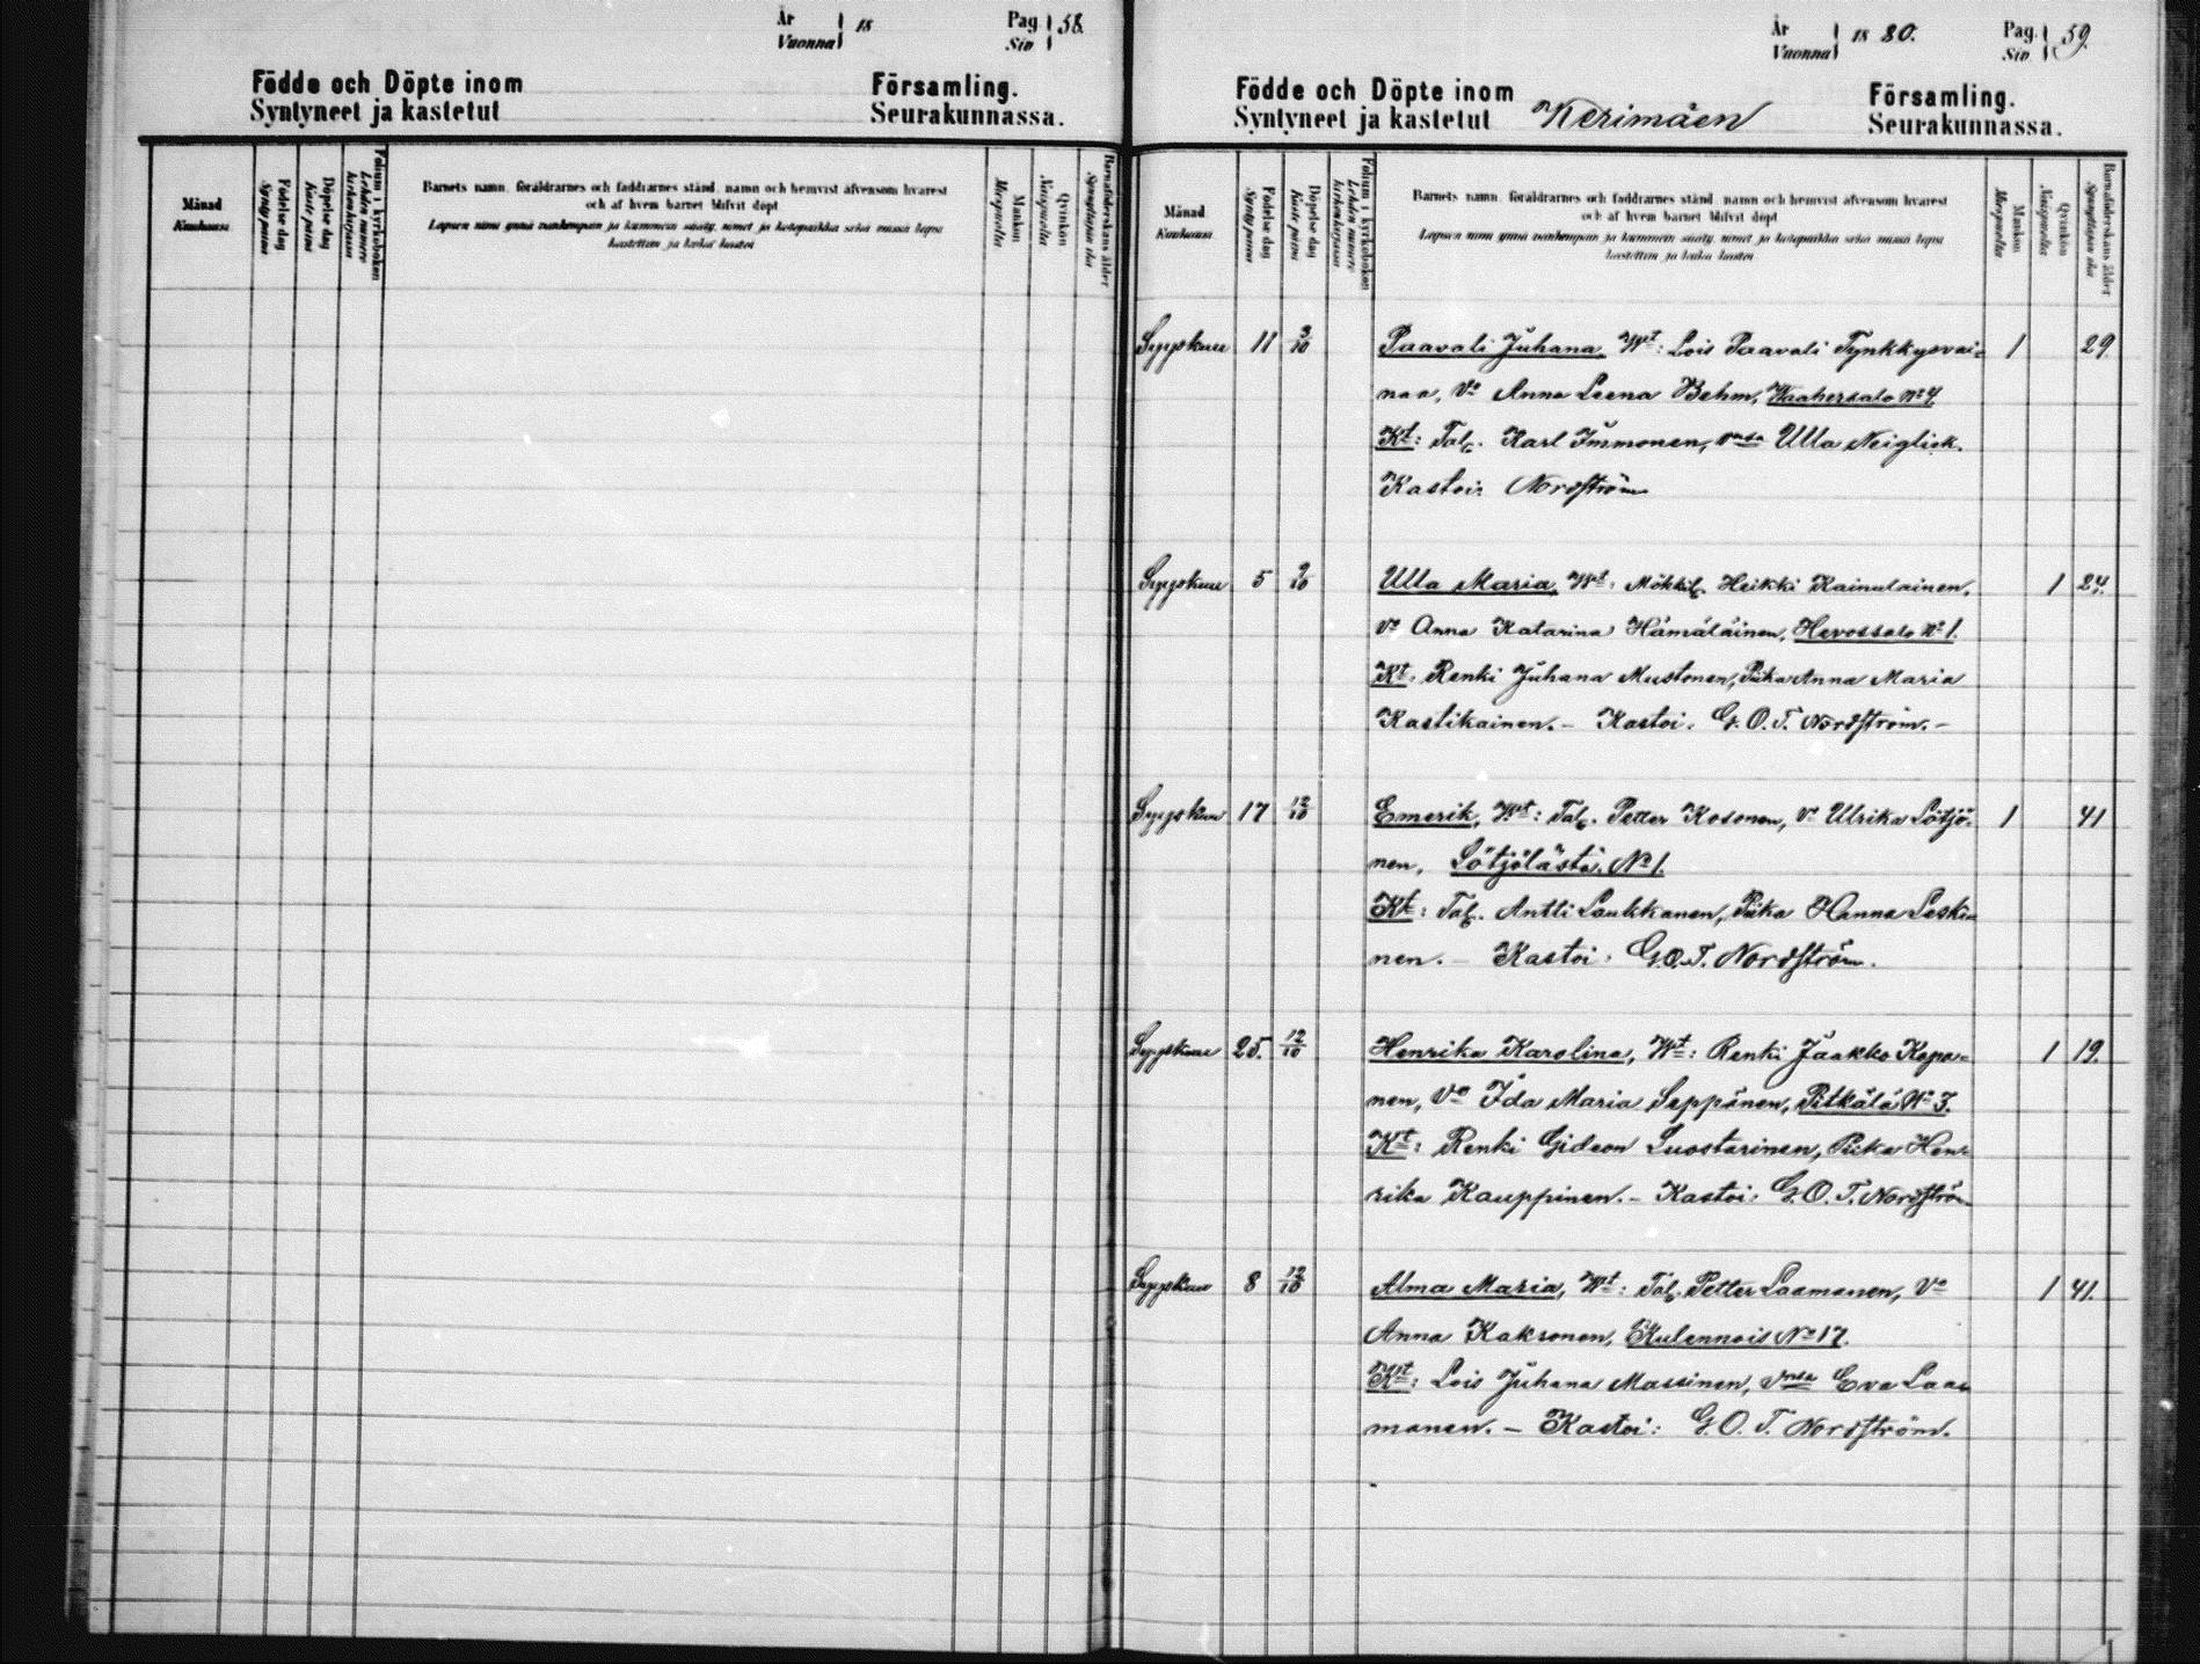 År 18 Pag. 58.
Vuonna Siv
Födde och Döpte inom Församling.
Syntyneet ja kastetut Seurakunnassa.
Månad
Kuukausi
Födelse dag
Synty päivä
Döpelse dag
Kaste päivä
Folium i kyrkoboken
Lehden numero
kirkonkirjassa
Barnets namn, föräldrarnes och faddrarnes stånd, namn och hemvist äfvensom hvarest
och af hvem barnet blifvit döpt
Lapsen nimi ynnä vanhempain ja kummein sääty, nimet ja kotopaikka sekä missä lapsi
kastettiin ja kuka kastoi
Mankön
Miespuolta
Qvinkön
Naispuolta
Barnaföderskans ålder
Synnyttäjän ikä
År 1880. Pag. 59.
Vuonna Siv.
Födde och Döpte inom Församling.
Syntyneet ja kastetut Kerimäen Seurakunnassa.
Månad
Kuukausi
Födelse dag
Synty päivä
Döpelse dag
Kaste päivä
Folium i kyrkoboken
Lehden numero
kirkonkirjassa
Barnets namn, föräldrarnes och faddrarnes stånd, namn och hemvist äfvensom hvarest
och af hvem barnet blifvit döpt
Lapsen nimi ynnä vanhempain ja kummein sääty, nimet ja kotopaikka sekä missä lapsi
kastettiin ja kuka kastoi
Mankön
Miespuolta
Qvinkön
Naispuolta
Barnaföderskans ålder
Synnyttäjän ikä
Syyskuu 11 3/10 Paavali Juhana, Wt: Lois Paavali Tynkkysvai= 1 29
naa, Vo Anna Leena Behm, Waahersalo No 4
Kt: Tal. Karl Immonen, vmsa Ulla Neiglick.
Kastoi: Nordström
Syyskuu 5 9/10 Ulla Maria, Wt: Mökkil. Heikki Kainulainen, 1 24.
Vo Anna Katarina Hämäläinen, Hevossalo No 1.
Kt: Renki Juhana Mustonen, Piika Anna Maria
Kastikainen. - Kastoi: G. O. T. Nordström. -
Syyskuu 17 12/10 Emerik, Wt: Tal. Petter Kosonen, Vo Ulrika Lötjö= 1 41
nen, Lötjölästä No 1.
Kt: Tal. Antti Laukkanen, Piika Hanna Laski=
nen. - Kastoi: G. O. T. Nordström.
Syyskuu 25. 12/10 Henrika Karolina, Wt: Renki Jaakko Kopo= 1 19.
nen, Vo Ida Maria Seppänen, Pitkälä No 3.
Kt: Renki Gideon Luostarinen, Piika Hen=
rika Kauppinen. - Kastoi: G. O. T. Nordström
Syyskuu 8 12/10 Alma Maria, Wt: Tal. Petter Laamanen, Vo 1 41.
Anna Kaksonen, Kulennois No 17.
Kt: Lois Juhana Massinen, vmsa Eva Laa=
manen. - Kastoi: G. O. T. Nordström.